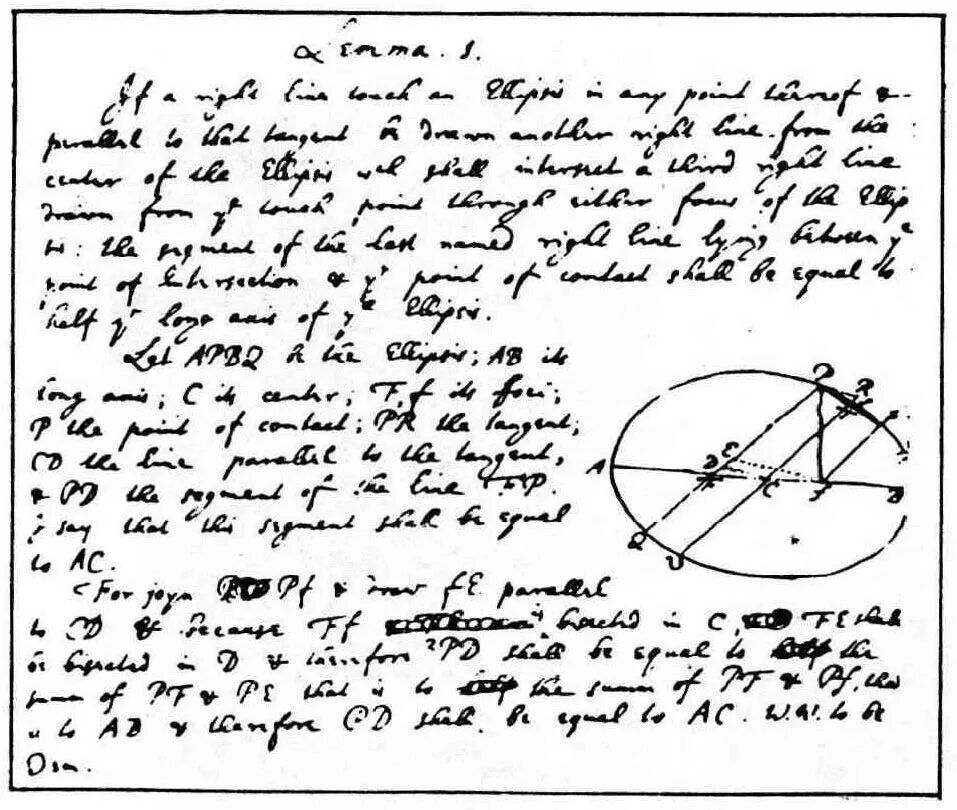 Lemma. 1.
If a right line touch an Ellipsis in any point thereof &
parallel to that tangent be drawn another right line from the
center of the Ellipsis wch shall intersect a third right line
drawn from ye touch point through either focus of the Ellip
sis: the segment of the last named right line lying between ye
point of intersection & ye point of contact shall be equal to
half ye long axis of ye Ellipsis.
Let APBQ be the Ellipsis; AB its
long axis; C its center; F, f its foci;
P the point of contact; PR the tangent;
CD the line parallel to the tangent,
& PD the segment of the line FP.
I say that this segment shall be equal
to AC.
For joyn Pf & draw fE parallel
to CD & because Ff is bisected in C, FE shall
be bisected in D & therefore 2PD shall be equal to the
sum of PF & PE that is to the sum of PF & Pf, that
is to AB & therefore PD shall be equal to AC. W.W. to be
Dem.
P R
A D E C f B
F
Q